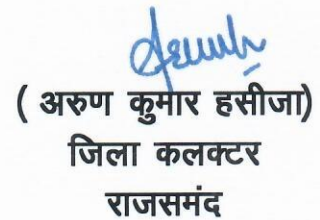 ( अरुण कुमार हसीजा)
जिला कलक्टर
राजसमंद